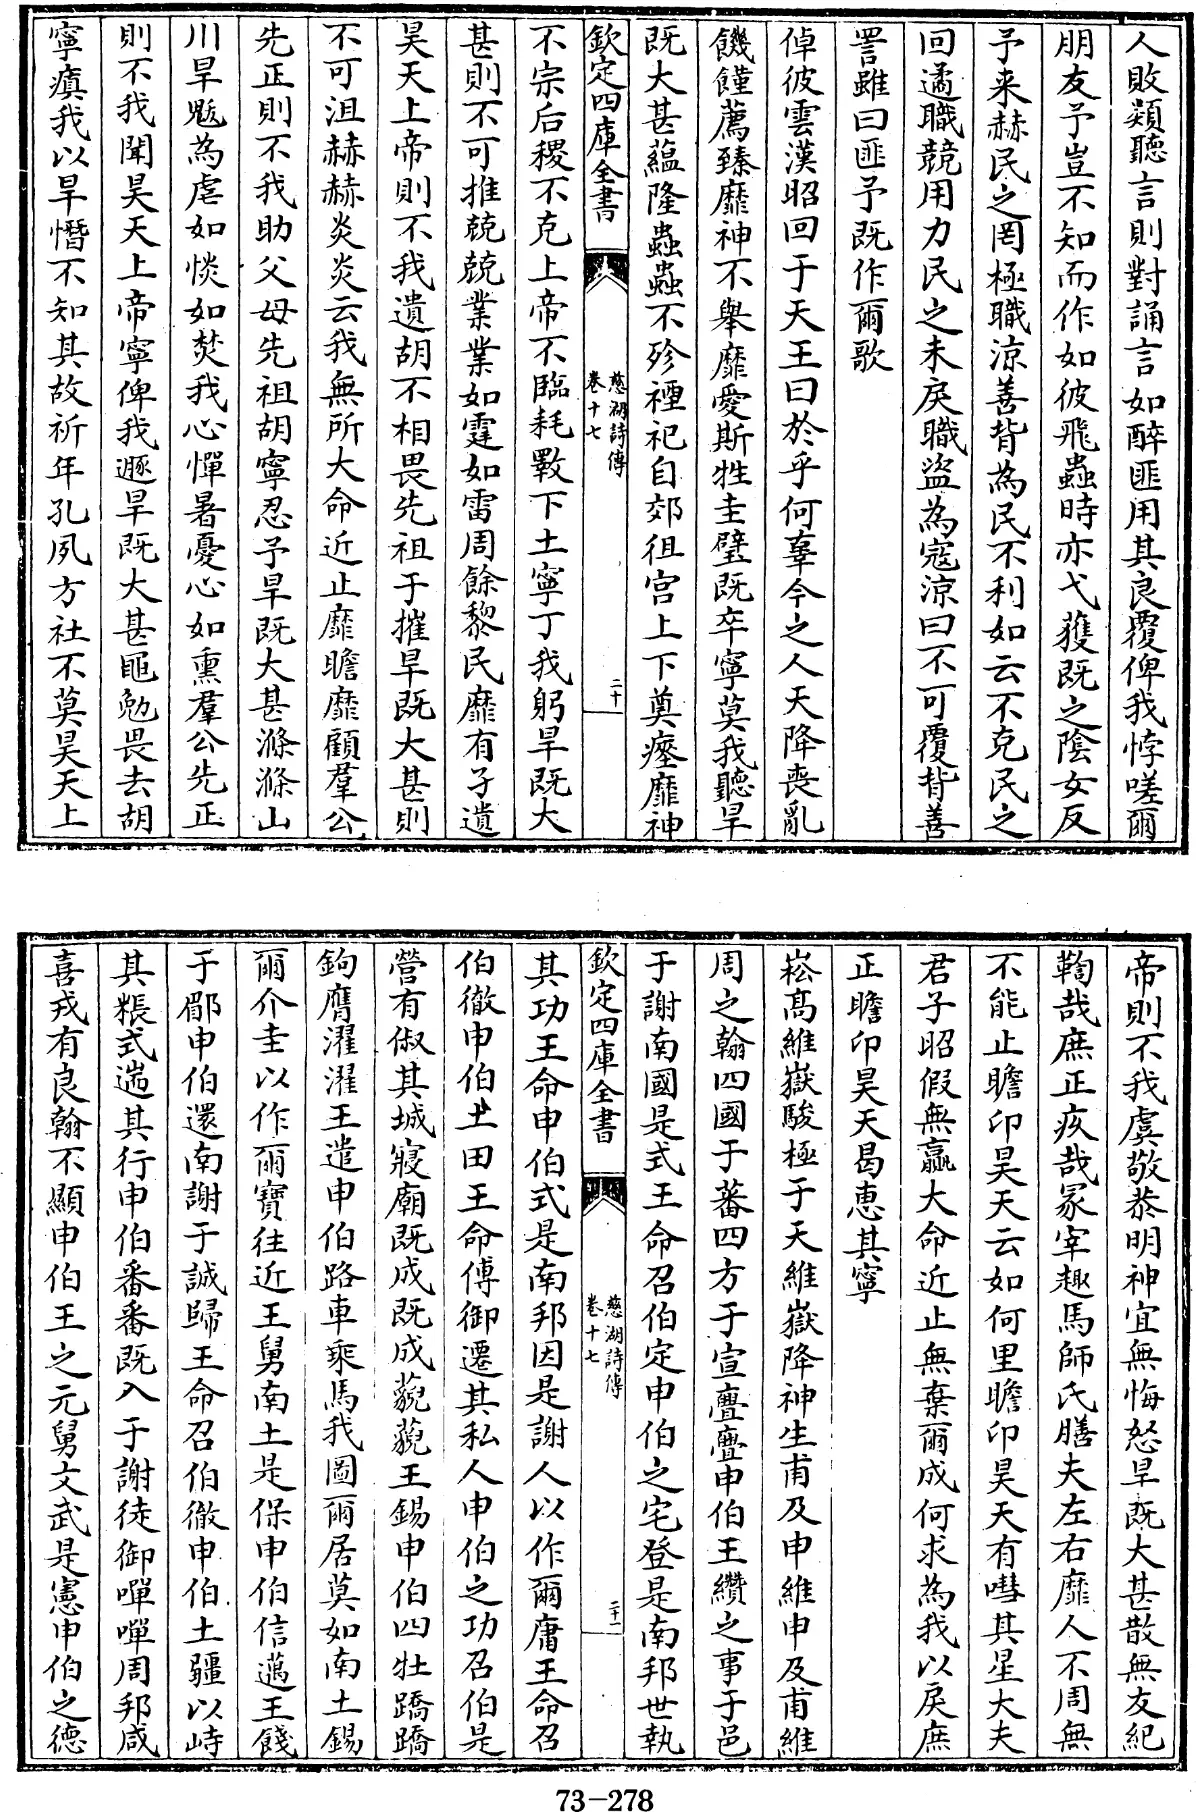 人敗類聽言則對誦言如醉匪用其良覆俾我悖嗟爾
朋友予豈不知而作如彼飛蟲時亦弋獲既之陰女反
予来赫民之罔極職涼善背為民不利如云不克民之
回遹職競用力民之未戾職盜為寇涼曰不可覆背善
詈雖曰匪予既作爾歌
倬彼雲漢昭回于天王曰於乎何辜今之人天降喪亂
饑饉薦臻靡神不舉靡愛斯牲圭璧既卒寧莫我聽旱
既大甚藴隆蟲蟲不殄禋祀自郊徂宫上下奠瘞靡神
欽定四庫全書
慈湖詩傳
卷十七
二十
不宗后稷不克上帝不臨耗斁下土寧丁我躬旱既大
甚則不可推兢兢業業如霆如雷周餘黎民靡有孑遺
昊天上帝則不我遺胡不相畏先祖于摧旱既大甚則
不可沮赫赫炎炎云我無所大命近止靡瞻靡顧羣公
先正則不我助父母先祖胡寧忍予旱既大甚滌滌山
川旱魃為虐如惔如焚我心憚暑憂心如熏羣公先正
則不我聞昊天上帝寧俾我遯旱既大甚黽勉畏去胡
寧瘨我以旱憯不知其故祈年孔夙方社不莫昊天上
帝則不我虞敬恭明神宜無悔怒旱既大甚散無友紀
鞫哉庶正疚哉冢宰趣馬師氏膳夫左右靡人不周無
不能止瞻卬昊天云如何里瞻卬昊天有嘒其星大夫
君子昭假無贏大命近止無棄爾成何求為我以戾庶
正瞻卬昊天曷惠其寧
崧高維嶽駿極于天維嶽降神生甫及申維申及甫維
周之翰四國于蕃四方于宣亹亹申伯王纘之事于邑
于謝南國是式王命召伯定申伯之宅登是南邦世執
欽定四庫全書
慈湖詩傳
卷十七
二十一
其功王命申伯式是南邦因是謝人以作爾庸王命召
伯徹申伯土田王命傅御遷其私人申伯之功召伯是
營有俶其城寢廟既成既成藐藐王錫申伯四牡蹻蹻
鉤膺濯濯王遣申伯路車乘馬我圖爾居莫如南土錫
爾介圭以作爾寶往近王舅南土是保申伯信邁王餞
于郿申伯還南謝于誠歸王命召伯徹申伯土疆以峙
其粻式遄其行申伯番番既入于謝徒御嘽嘽周邦咸
喜戎有良翰不顯申伯王之元舅文武是憲申伯之德
73-278